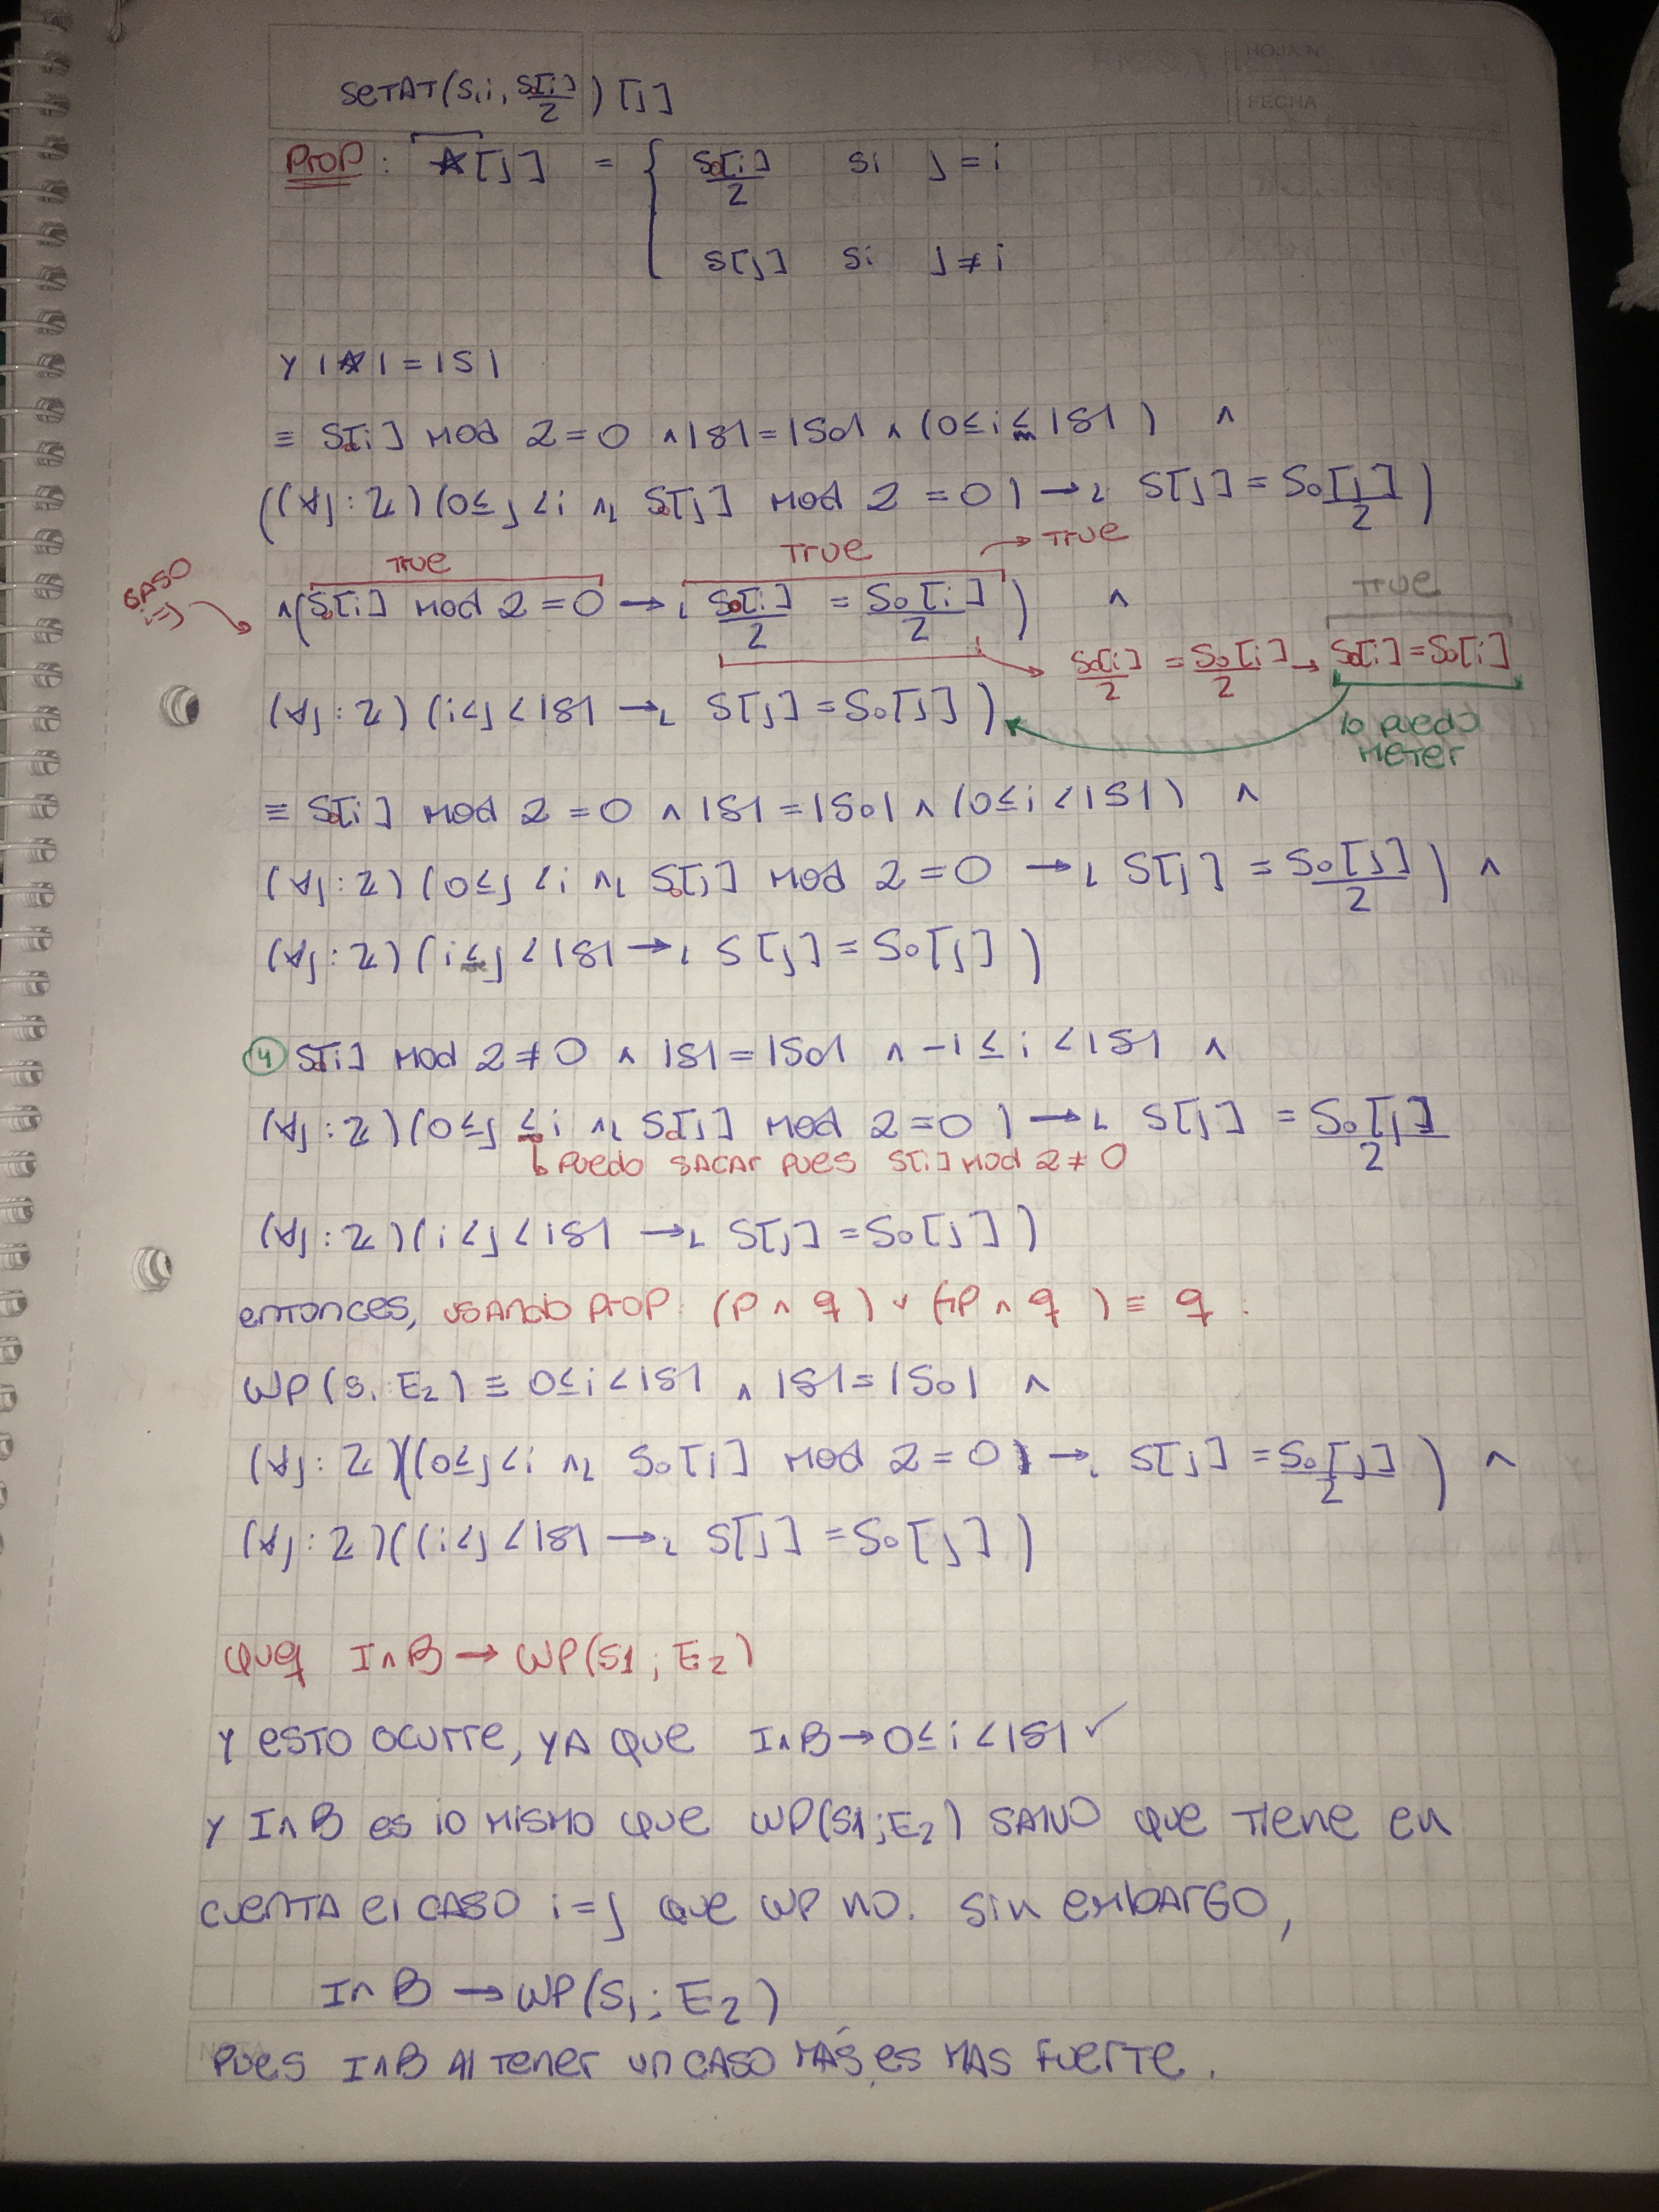 HOJA N
FECHA
SETAT(S,i, S₀[i]/2)[j]
PROP: A[j] = { S₀[i]/2 si j = i
S[j] si j ≠ i
Y |A| = |S|
≡ S₀[i] MOD 2 = 0 ∧ |S| = |S₀| ∧ (0 ≤ i ≤ |S|) ∧
((∀j : ℤ)(0 ≤ j < i ∧L S₀[j] MOD 2 = 0) →L S[j] = S₀[j]/2)
TRUE TRUE → TRUE
CASO i=j
∧(S₀[i] MOD 2 = 0 →L S₀[i]/2 = S₀[i]/2) ∧
TRUE
S₀[i]/2 = S₀[i]/2 → S₀[i] = S₀[i]
(∀j : ℤ)(i < j < |S| →L S[j] = S₀[j])
lo puedo
METER
≡ S₀[i] MOD 2 = 0 ∧ |S| = |S₀| ∧ (0 ≤ i < |S|) ∧
(∀j : ℤ)(0 ≤ j < i ∧L S₀[j] MOD 2 = 0 →L S[j] = S₀[j]/2) ∧
(∀j : ℤ)(i ≤ j < |S| →L S[j] = S₀[j])
④ S₀[i] MOD 2 ≠ 0 ∧ |S| = |S₀| ∧ -1 ≤ i < |S| ∧
(∀j : ℤ)(0 ≤ j ≤ i ∧L S₀[j] MOD 2 = 0) →L S[j] = S₀[j]/2
↳ PUEDO SACAR PUES S[i] MOD 2 ≠ 0
(∀j : ℤ)(i < j < |S| →L S[j] = S₀[j])
ENTONCES, USANDO PROP: (P ∧ q) ∨ (¬P ∧ q) ≡ q :
WP(S, E₂) ≡ 0 ≤ i < |S| ∧ |S| = |S₀| ∧
(∀j : ℤ)((0 ≤ j < i ∧L S₀[j] MOD 2 = 0) →L S[j] = S₀[j]/2) ∧
(∀j : ℤ)((i < j < |S| →L S[j] = S₀[j])
QUEQ I ∧ B → WP(S1; E₂)
Y ESTO OCURRE, YA QUE I ∧ B → 0 ≤ i < |S| ✓
Y I ∧ B ES LO MISMO QUE WP(S1; E₂) SALVO QUE TIENE EN
CUENTA EL CASO i = j QUE WP NO. SIN EMBARGO,
I ∧ B → WP(S₁; E₂)
NOTA
PUES I ∧ B AL TENER UN CASO MÁS, ES MAS FUERTE.